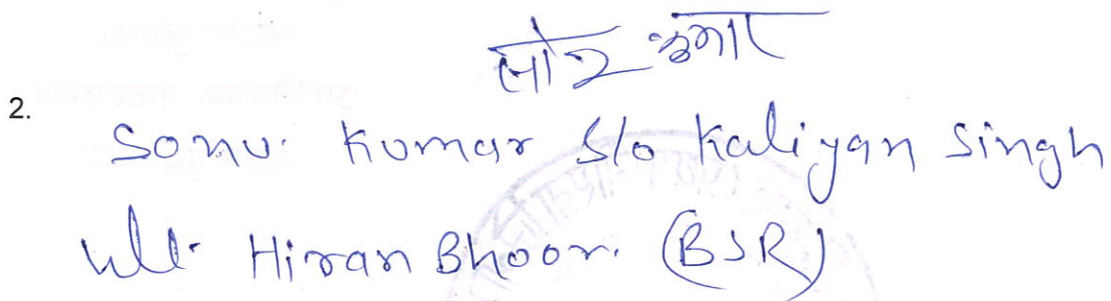 2.
Sonu. Kumar S/o Kaliyan Singh
Vill. Hiran Bhoor. (BSR)